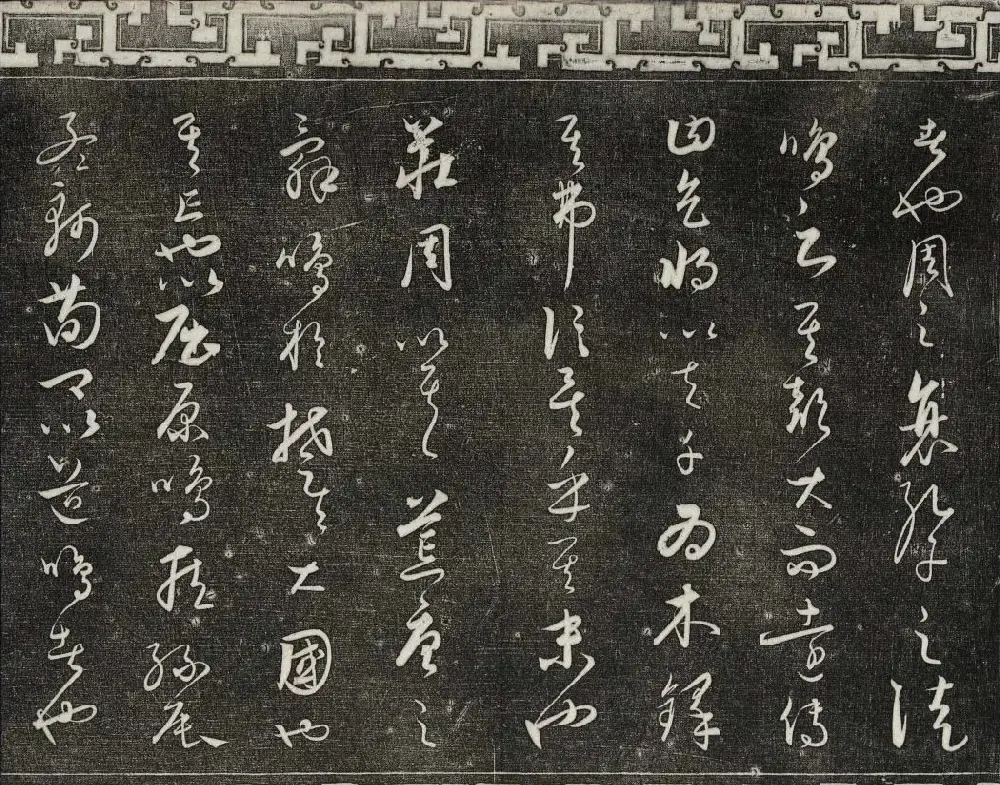 者也周之衰孔子之徒
鳴之其聲大而遠傳
曰天將以夫子為木鐸
其弗信矣乎其末也
莊周以其荒唐之
辭鳴於楚楚大國也
其亡也以屈原鳴臧孫辰
孟軻荀卿以道鳴者也